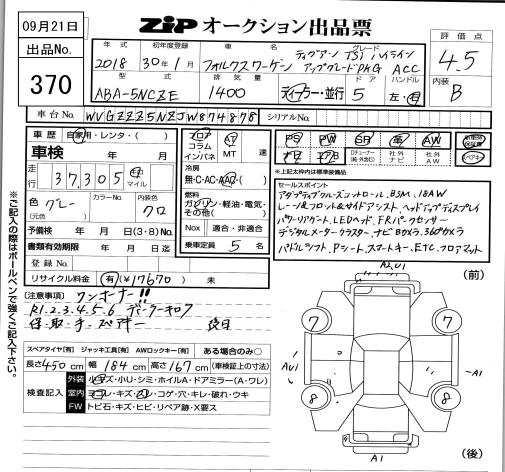 09月21日
出品No.
370
ZiP オークション出品票
評価点
4.5
内装
B
年式 初年度登録 車名 グレード
2018 30年1月 フォルクスワーゲン ティグアン TSI ハイライン
アップグレードPKG ACC
型式 排気量 ドア ハンドル
ABA-5NCZE 1400 ディーラー・並行 5 左・右
車台No. WVGZZZ5NZJW874878 シリアルNo.
車歴 自家用・レンタ・( )
車検 年 月
走行 37,305 km マイル
色 グレー カラーNo. 内装色 クロ
(元色)
予備検 年 月 日(3・8)No.
書類有効期限 年 月 日
登録No.
リサイクル料金 有(¥17670) 未
フロア AT
コラム
インパネ MT 速
冷房
無・C・AC・AAC・( )
燃料
ガソリン・軽油・電気・
その他( )
Nox 適合・非適合
乗車定員 5 名
PS PW SR 革 AW
Dチューナー
(純・外含む)
社外
ナビ
社外
AW
※上記太枠内は標準装備品
セールスポイント
アダプティブクルーズコントロール、BSM、18AW
レーン&フロント&サイドアシスト、ヘッドアップディスプレイ
パワーリヤゲート、LEDヘッド、FRパークセンサー
デジタルメータークラスター、ナビ Bカメラ、360°カメラ
パドルシフト、Pシート、スマートキー、ETC、フロアマット
[注意事項] ワンオーナー!!
R1.2.3.4.5.6 ディーラーキロク
保・取・手・スペアキー
スペアタイヤ[有] ジャッキ工具[有] AWロックキー[有] ある場合のみ○
長さ 450 cm 幅 184 cm 高さ 167 cm (車検証上の寸法)
検査記入
外装 小キズ・小U・シミ・ホイルA・ドアミラー(A・ワレ)
室内 ヨゴレ・キズ・スレ・コゲ・穴・キレ・破れ・ウキ
FW トビ石・キズ・ヒビ・リペア跡・X要ス
※ご記入の際はボールペンで強くご記入下さい。
(前)
A2,U1
7
7
AU1
A1
8
8
A1
(後)